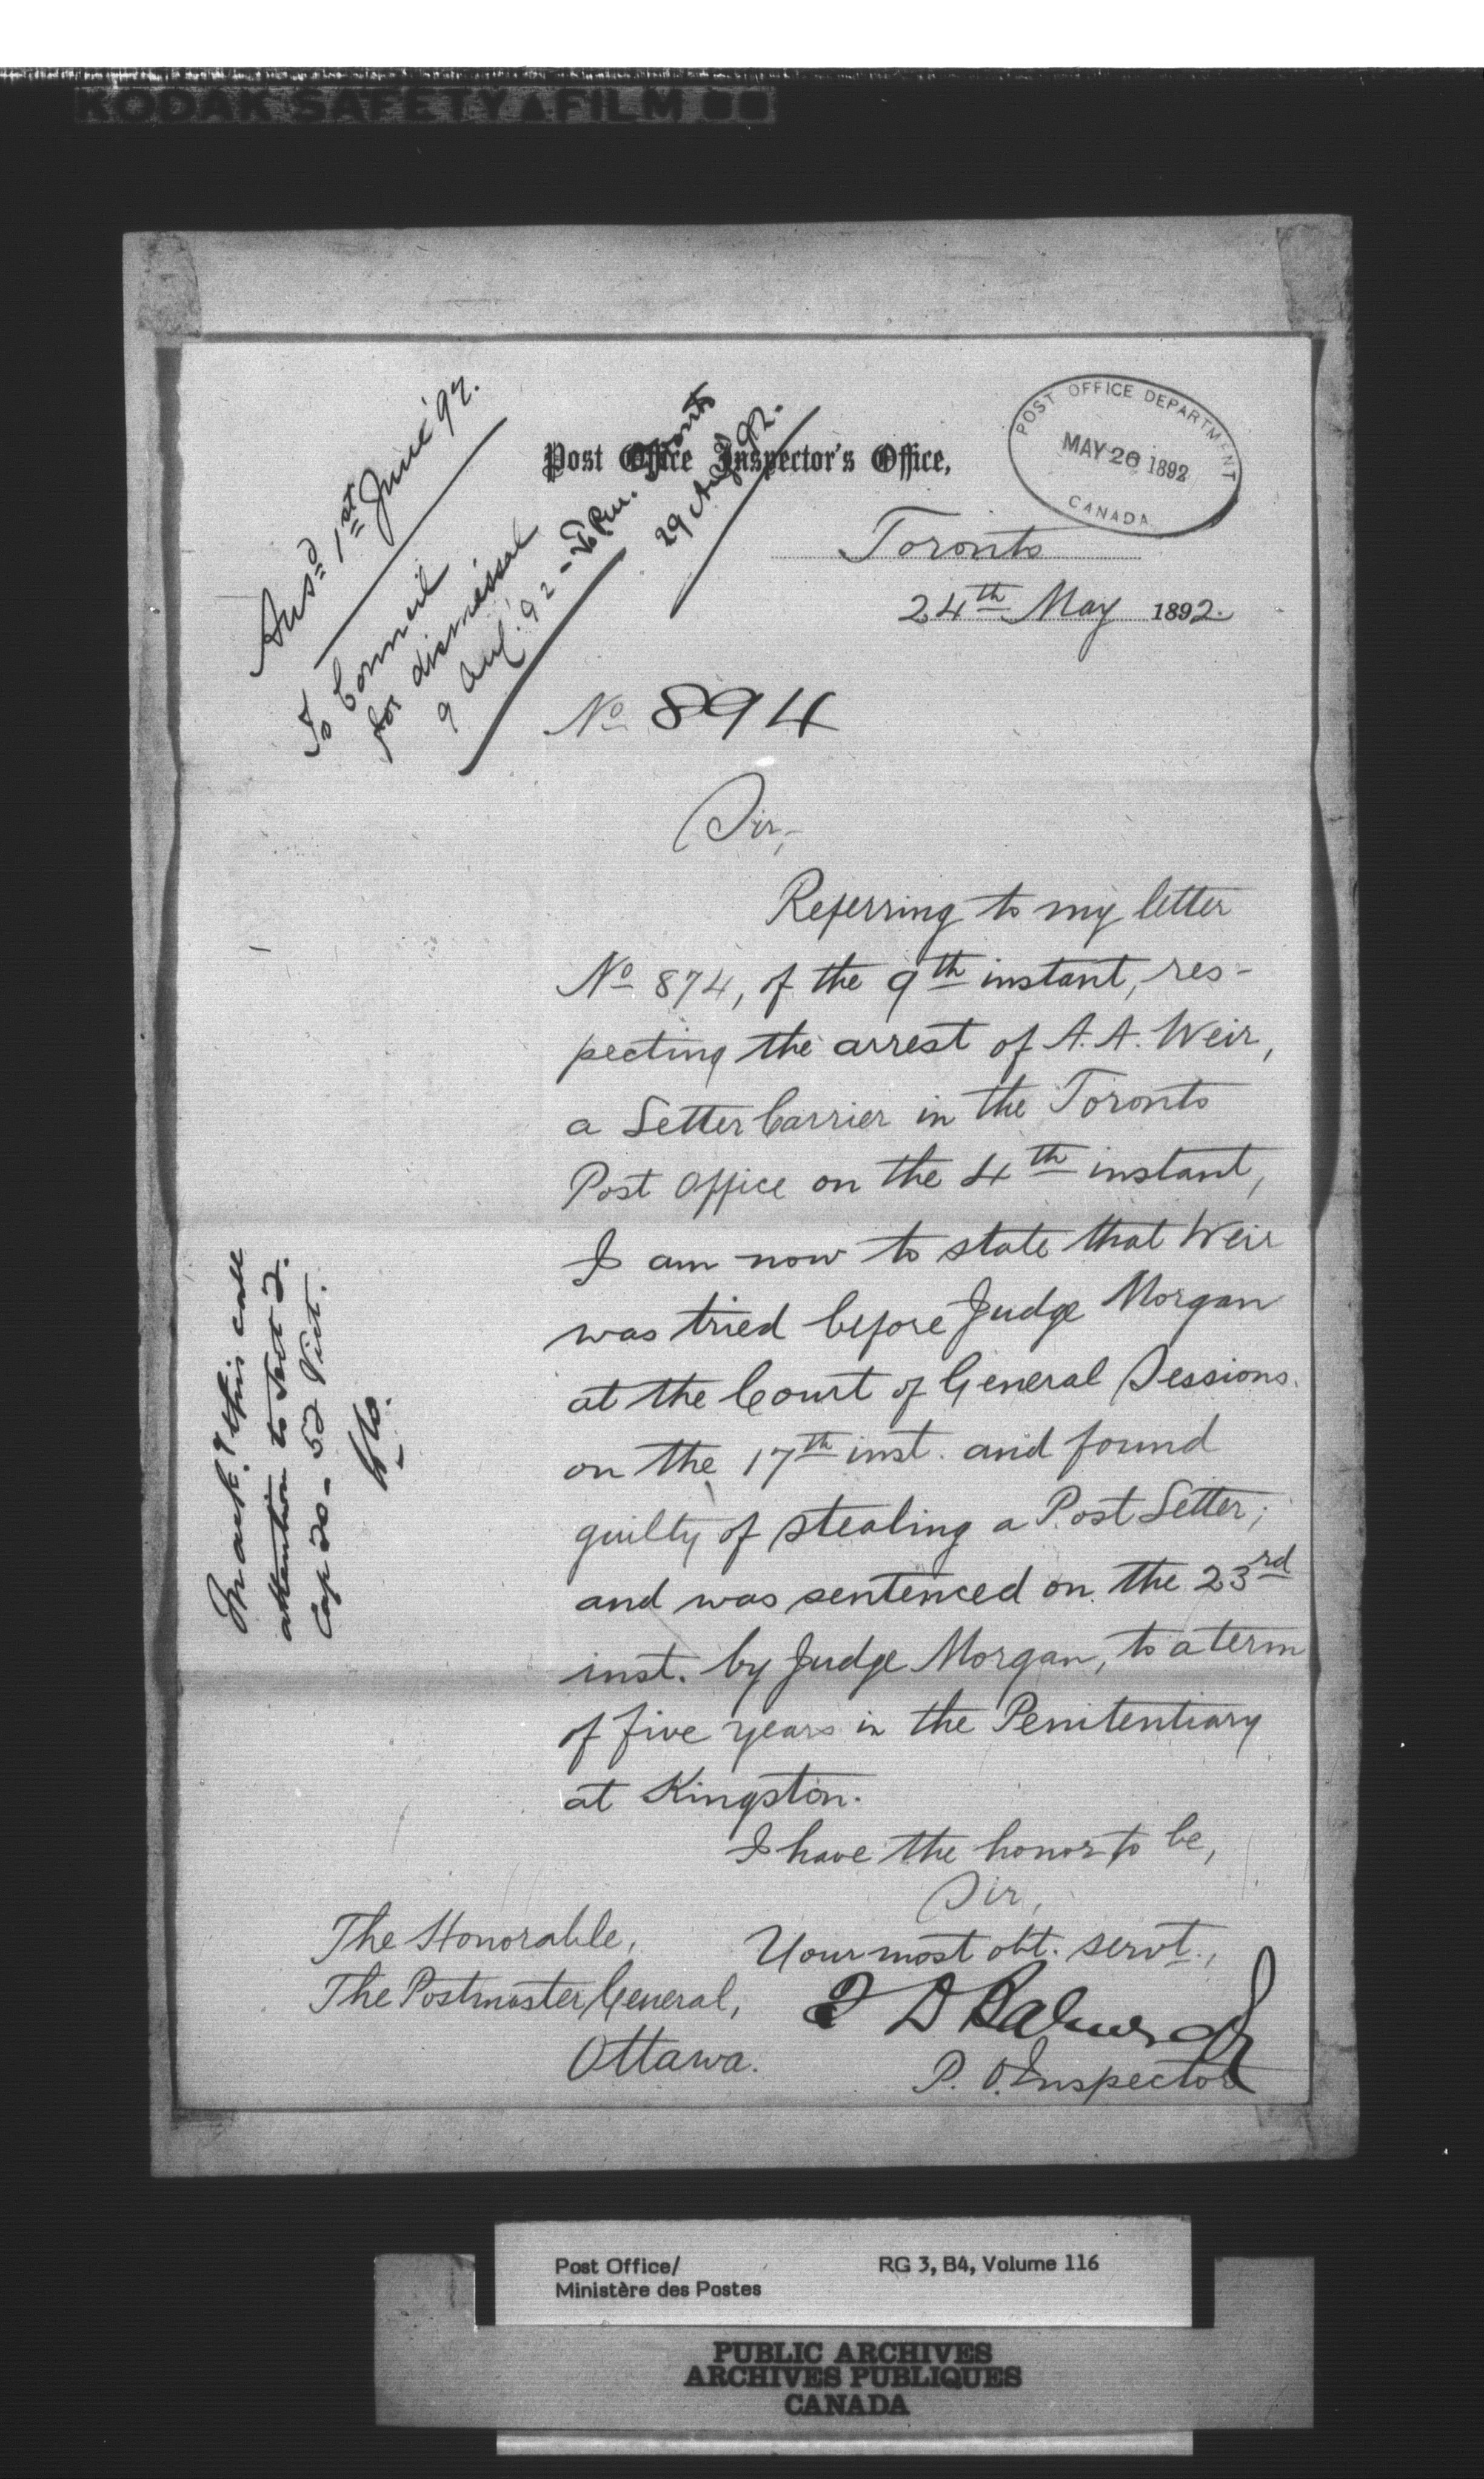 KODAK SAFETY FILM
Ansd 1st June '92.
To Council
for dismissal
9 Aug. '92 - To P.M. Toronto
29 Aug 92.
Post Office Inspector's Office,
POST OFFICE DEPARTMENT
MAY 26 1892
CANADA
Toronto
24th May 1892.
No 894
Sir,-
Referring to my letter
No 874, of the 9th instant, res-
pecting the arrest of A. A. Weir,
a Letter Carrier in the Toronto
Post Office on the 4th instant,
I am now to state that Weir
was tried before Judge Morgan
at the Court of General Sessions
on the 17th inst. and found
guilty of stealing a Post Letter;
and was sentenced on the 23rd
inst. by Judge Morgan, to a term
of five years in the Penitentiary
at Kingston.
I have the honor to be,
Sir,
Your most obt. servt.,
P. O. Inspector
The Honorable,
The Postmaster General,
Ottawa.
this &
attention to Sect 2.
Cap 20 - 52 Vict.
Post Office/
Ministère des Postes
RG 3, B4, Volume 116
PUBLIC ARCHIVES
ARCHIVES PUBLIQUES
CANADA